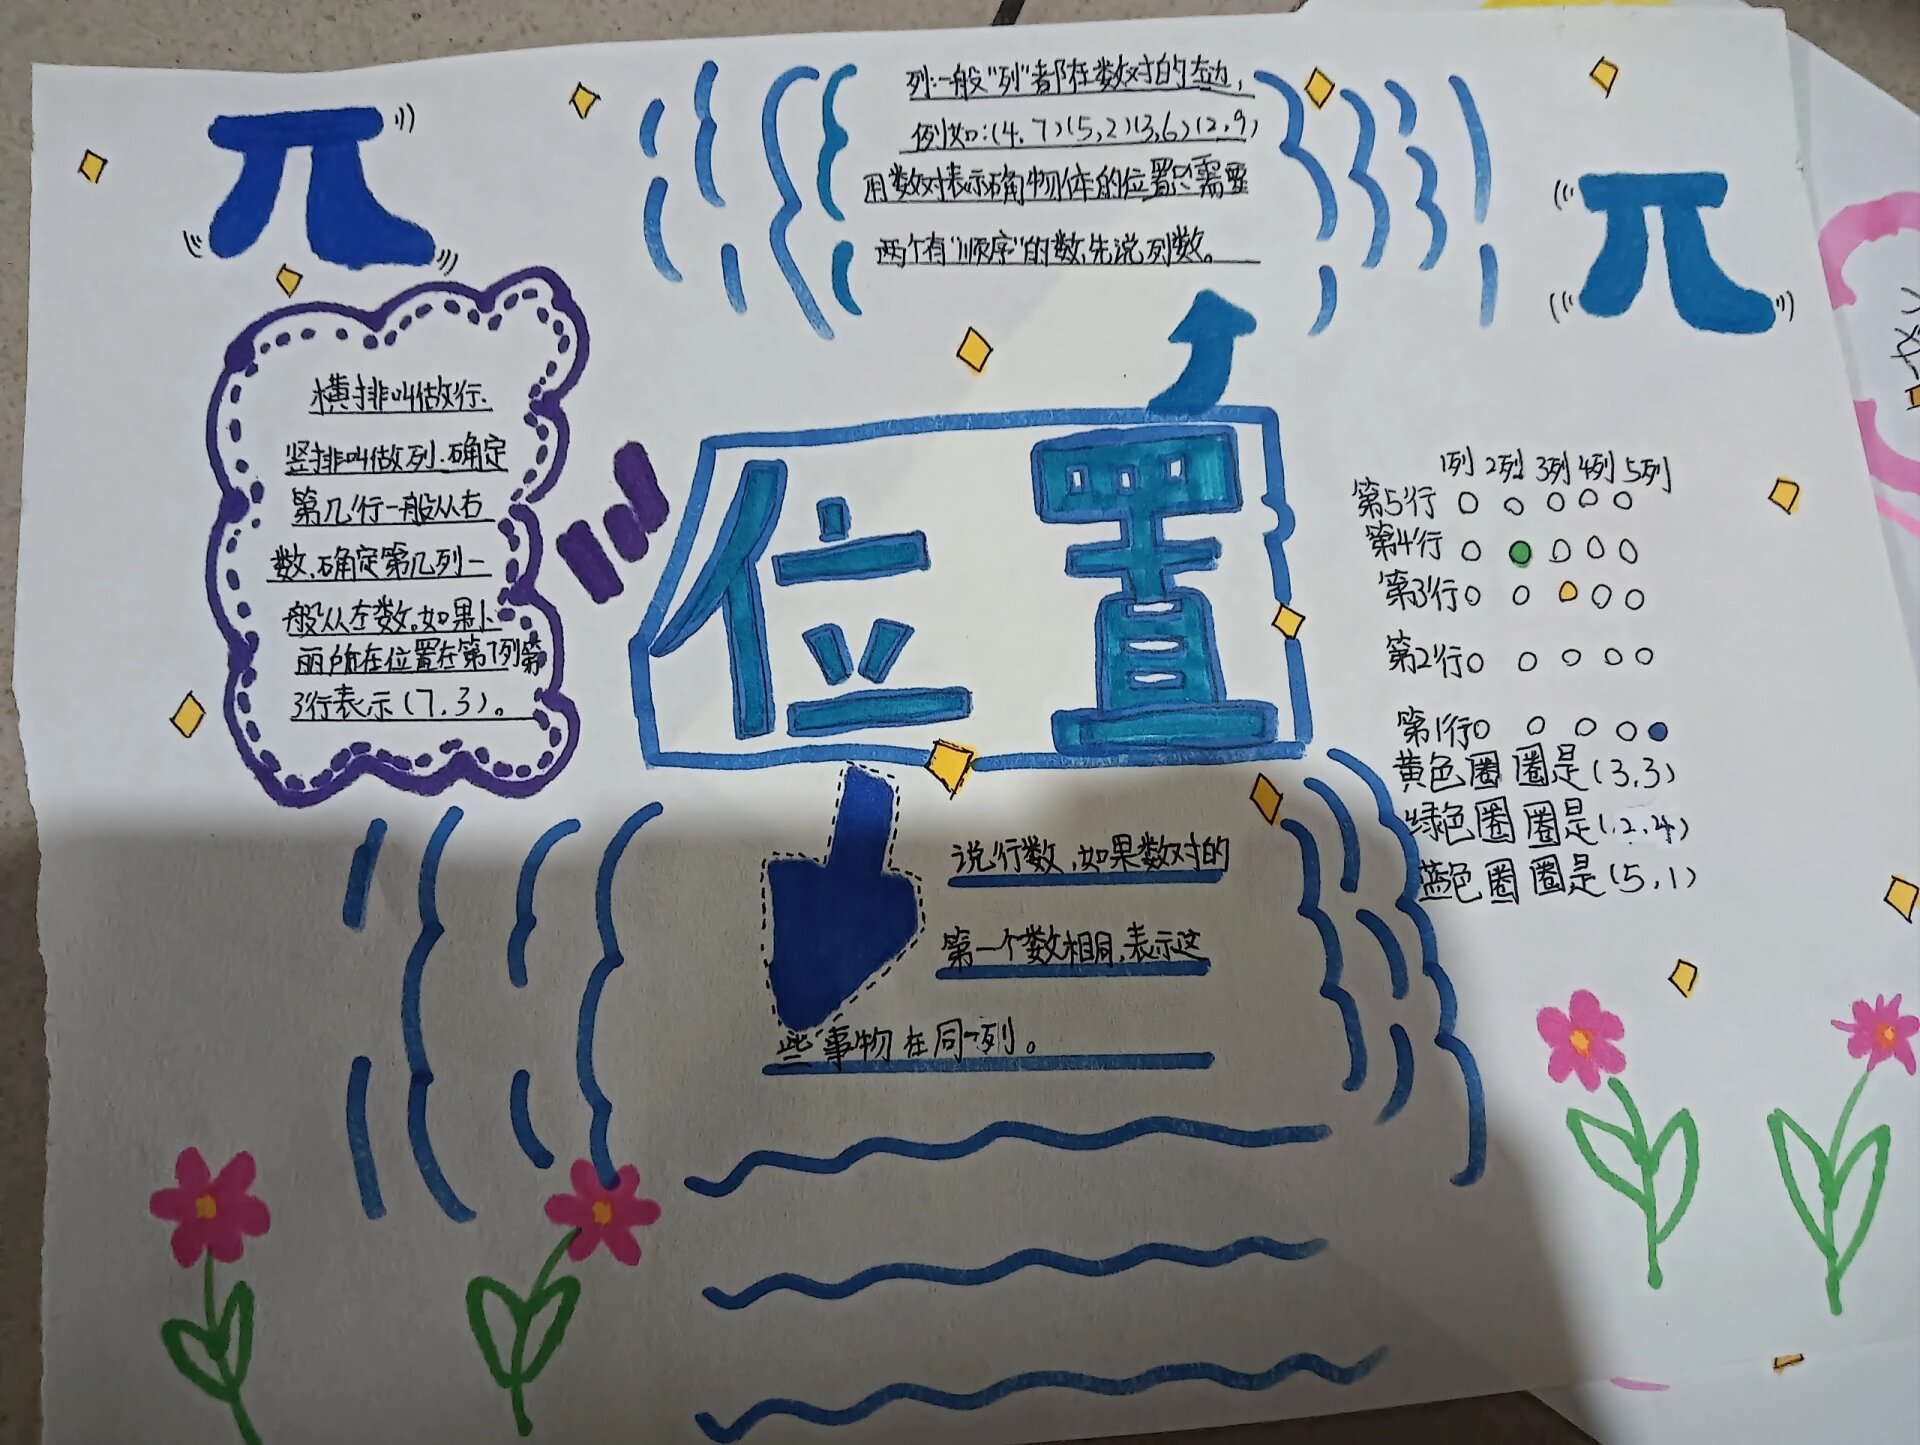 列:一般“列”都在数对的左边,
例如:(4,7)(5,2)(3,6)(2,9)
用数对表示确物体的位置只需要
两个有“顺序”的数,先说列数。
横排叫做行.
竖排叫做列.确定
第几行一般从右
数,确定第几列一
般从左数。如果小
丽所在位置在第7列第
3行表示(7.3)。
位置
1列 2列 3列 4列 5列
第5行
第4行
第3行
第2行
第1行
黄色圈圈是(3,3)
绿色圈圈是(2,4)
蓝色圈圈是(5,1)
说行数,如果数对的
第一个数相同,表示这
些事物在同一列。